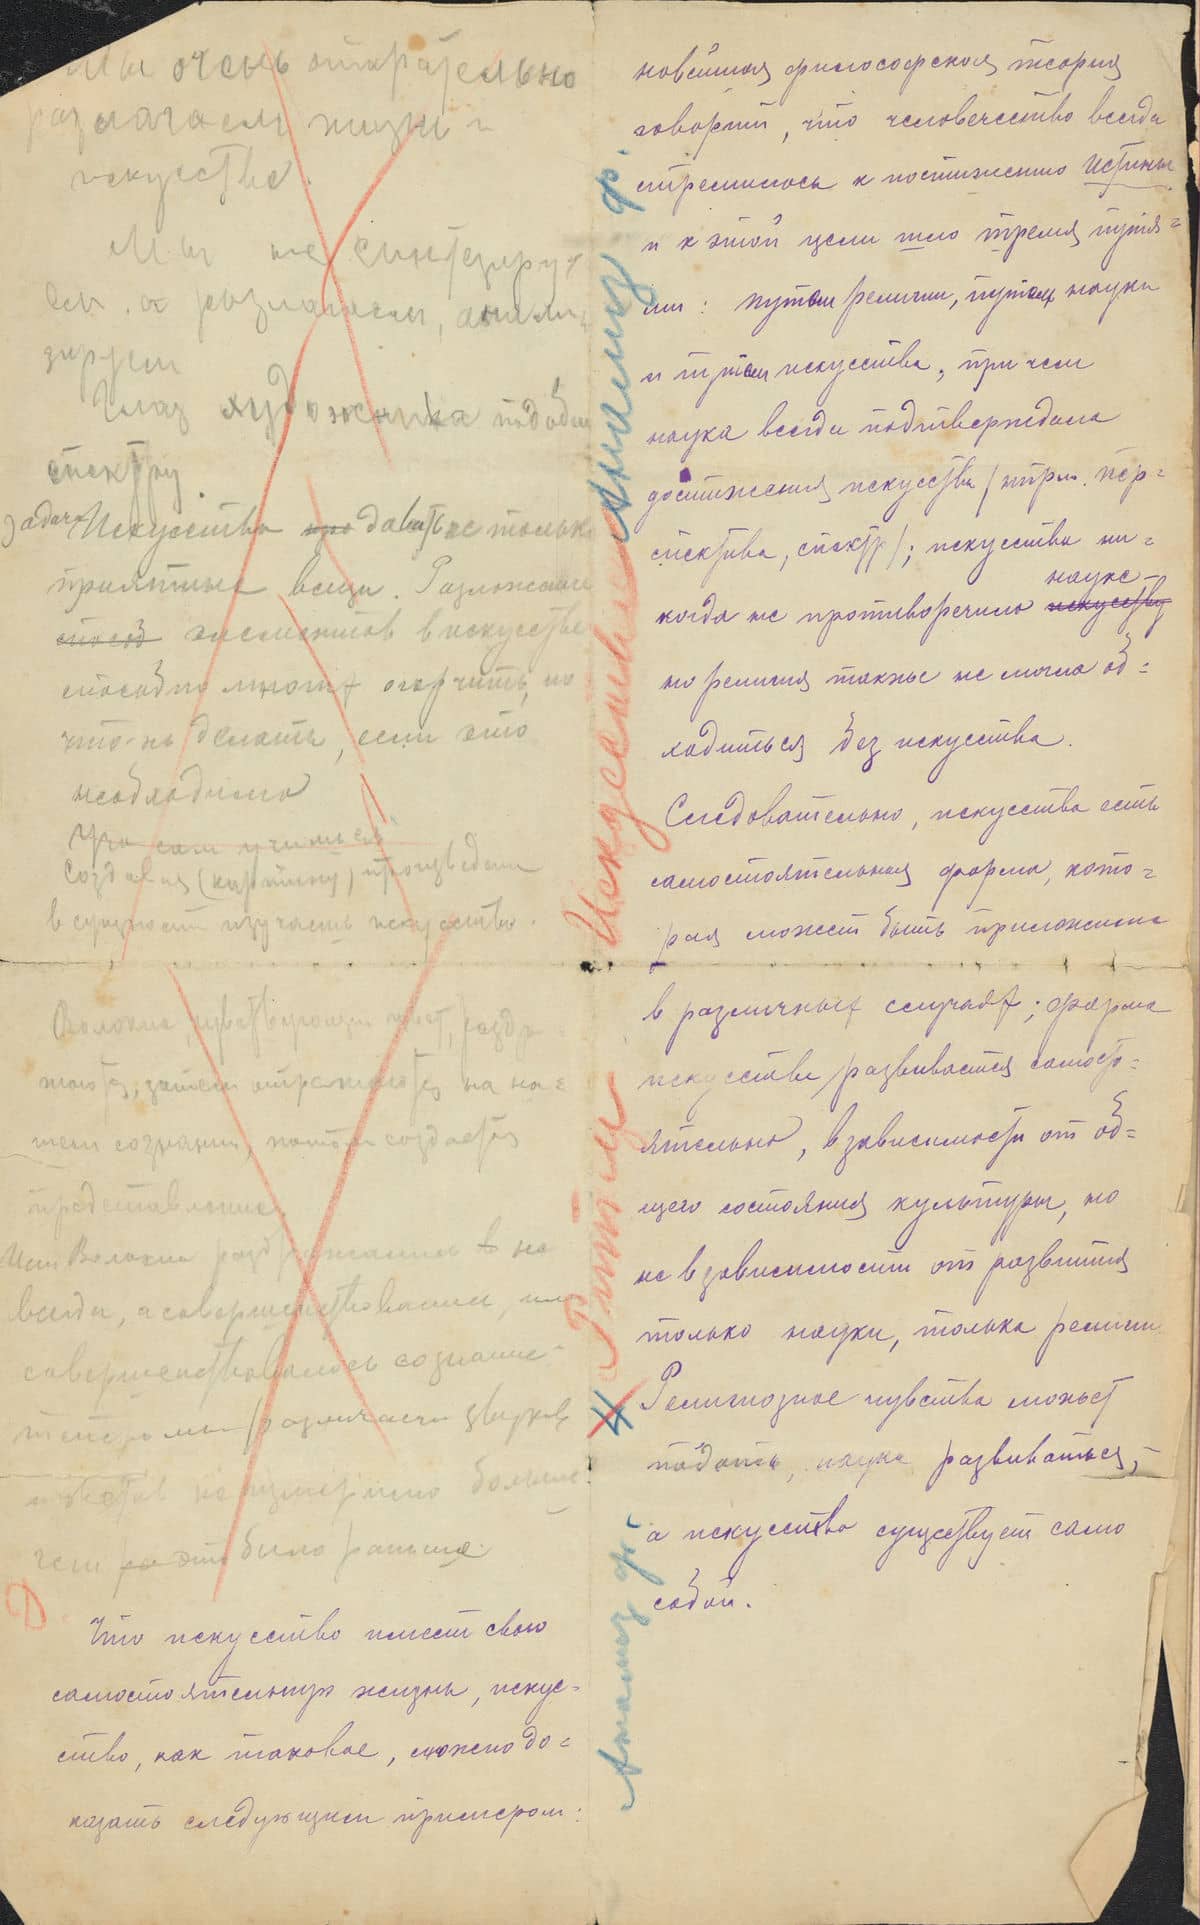 Мы очень старательно
разлагаем жизнь и
искусство.
Мы не синтезиру
ем, а разлагаем, анали
зируем
Глаз художника подобен
спектру.
Задача Искусства давать не только
приятные вещи. Разложение
способ элементов в искусстве
способно многих огорчить, но
что-нь делать, если это
необходимо
Что сам учишься
Создавая (картину) произведение
в сущности изучаешь искусство.
Волокна, чувствующие цвет, раздра
жаются, затем отражаются на на=
шем сознании, потом создается
представление.
Или Волокна раздражались не
всегда, а совершенствовались, или
совершенствовалось сознание
теперь мы различаем звуков
и цветов неизмеримо больше
чем это было раньше.
Что искусство имеет свою
самостоятельную жизнь, искус=
ство, как таковое, можно до=
казать следующим примером:
Анализ ф.
Искусство
Ритм
Анализ ф.
новейшая философская теория
говорит, что человечество всегда
стремилось к постижению Истины
и к этой цели шло тремя путя=
ми: путем религии, путем науки
и путем искусства, при чем
наука всегда подтверждала
достижения искусства (прим. пер=
спектива, спектр); искусство ни=
когда не противоречило искусству
науке—
но религия также не могла об=
ходиться без искусства.
Следовательно, искусство есть
самостоятельная форма, кото=
рая может быть приложена
в различных случаях; форма
искусства развивается самосто=
ятельно, в зависимости от об=
щего состояния культуры, но
не в зависимости от развития
только науки, только религии
Религиозное чувство может
падать, наука развиваться,—
а искусство существует само
собой.